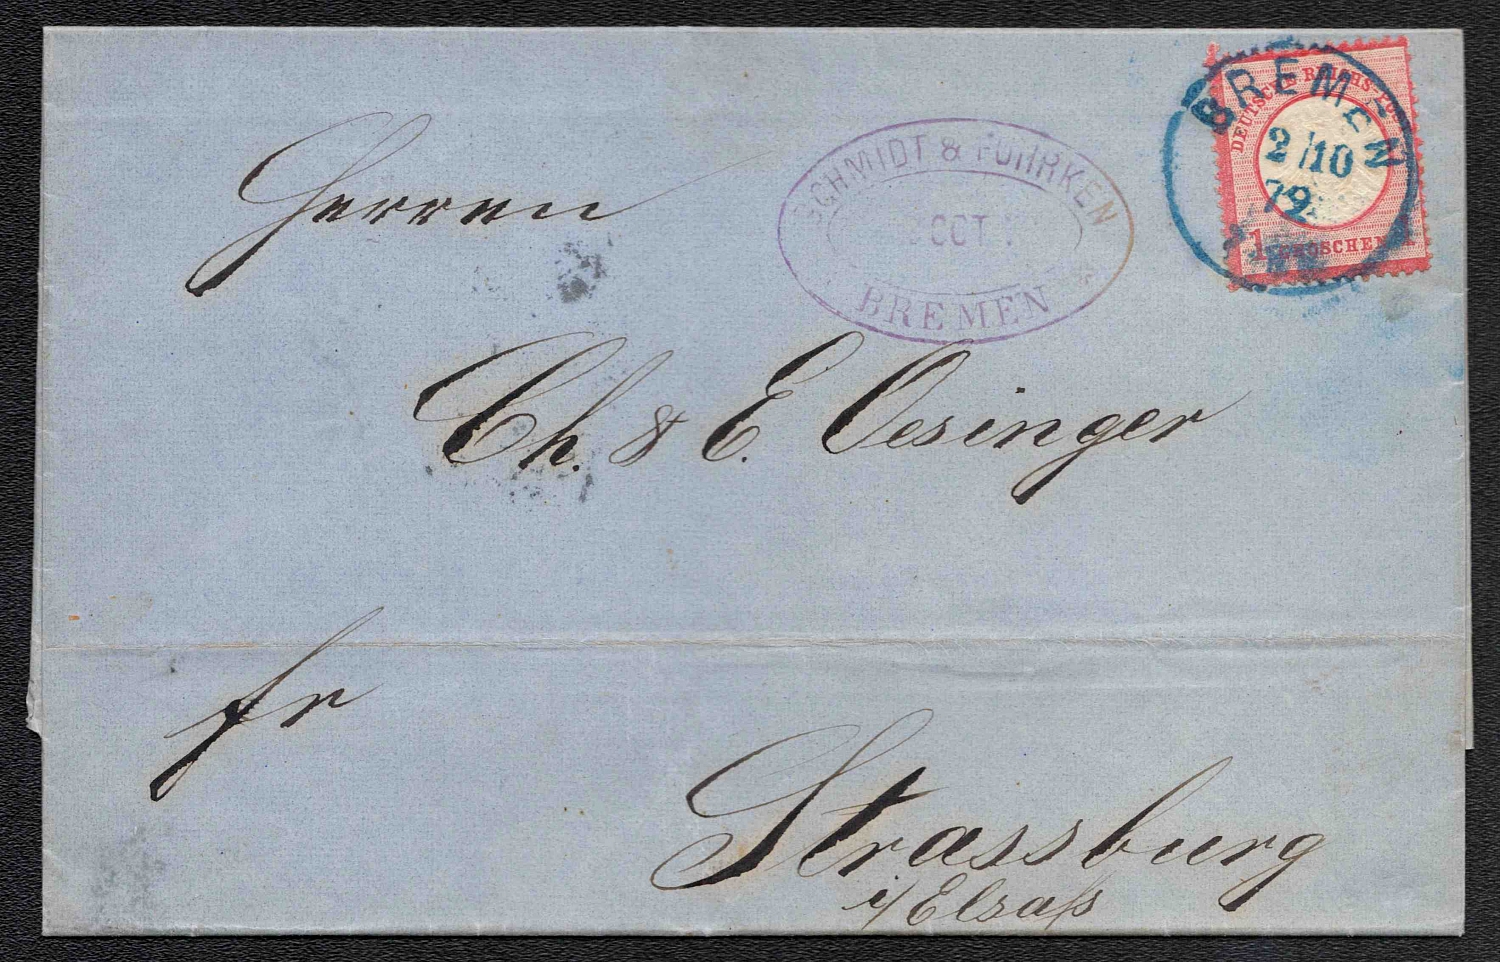 DEUTSCHE REICHS-PO
BREMEN
2/10
72
1 GROSCHEN 1
SCHMIDT & FÜHRKEN
OCT
BREMEN
Herren
Ch. & E. Oesinger
fr
Strassburg
i/Elsaß